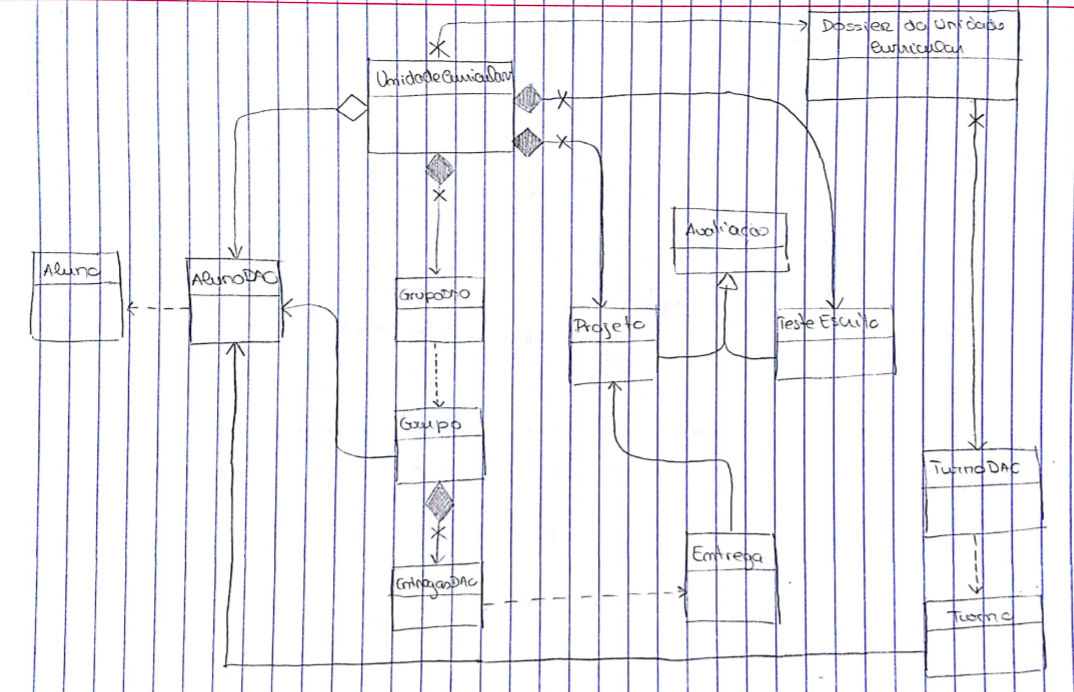 Dossier da Unidade
Curricular
UnidadeCurricular
Avaliação
Aluno
AlunoDAC
GrupoDAO
Projeto
TesteEscrito
Grupo
TurnoDAC
Entrega
EntregasDAC
Turno